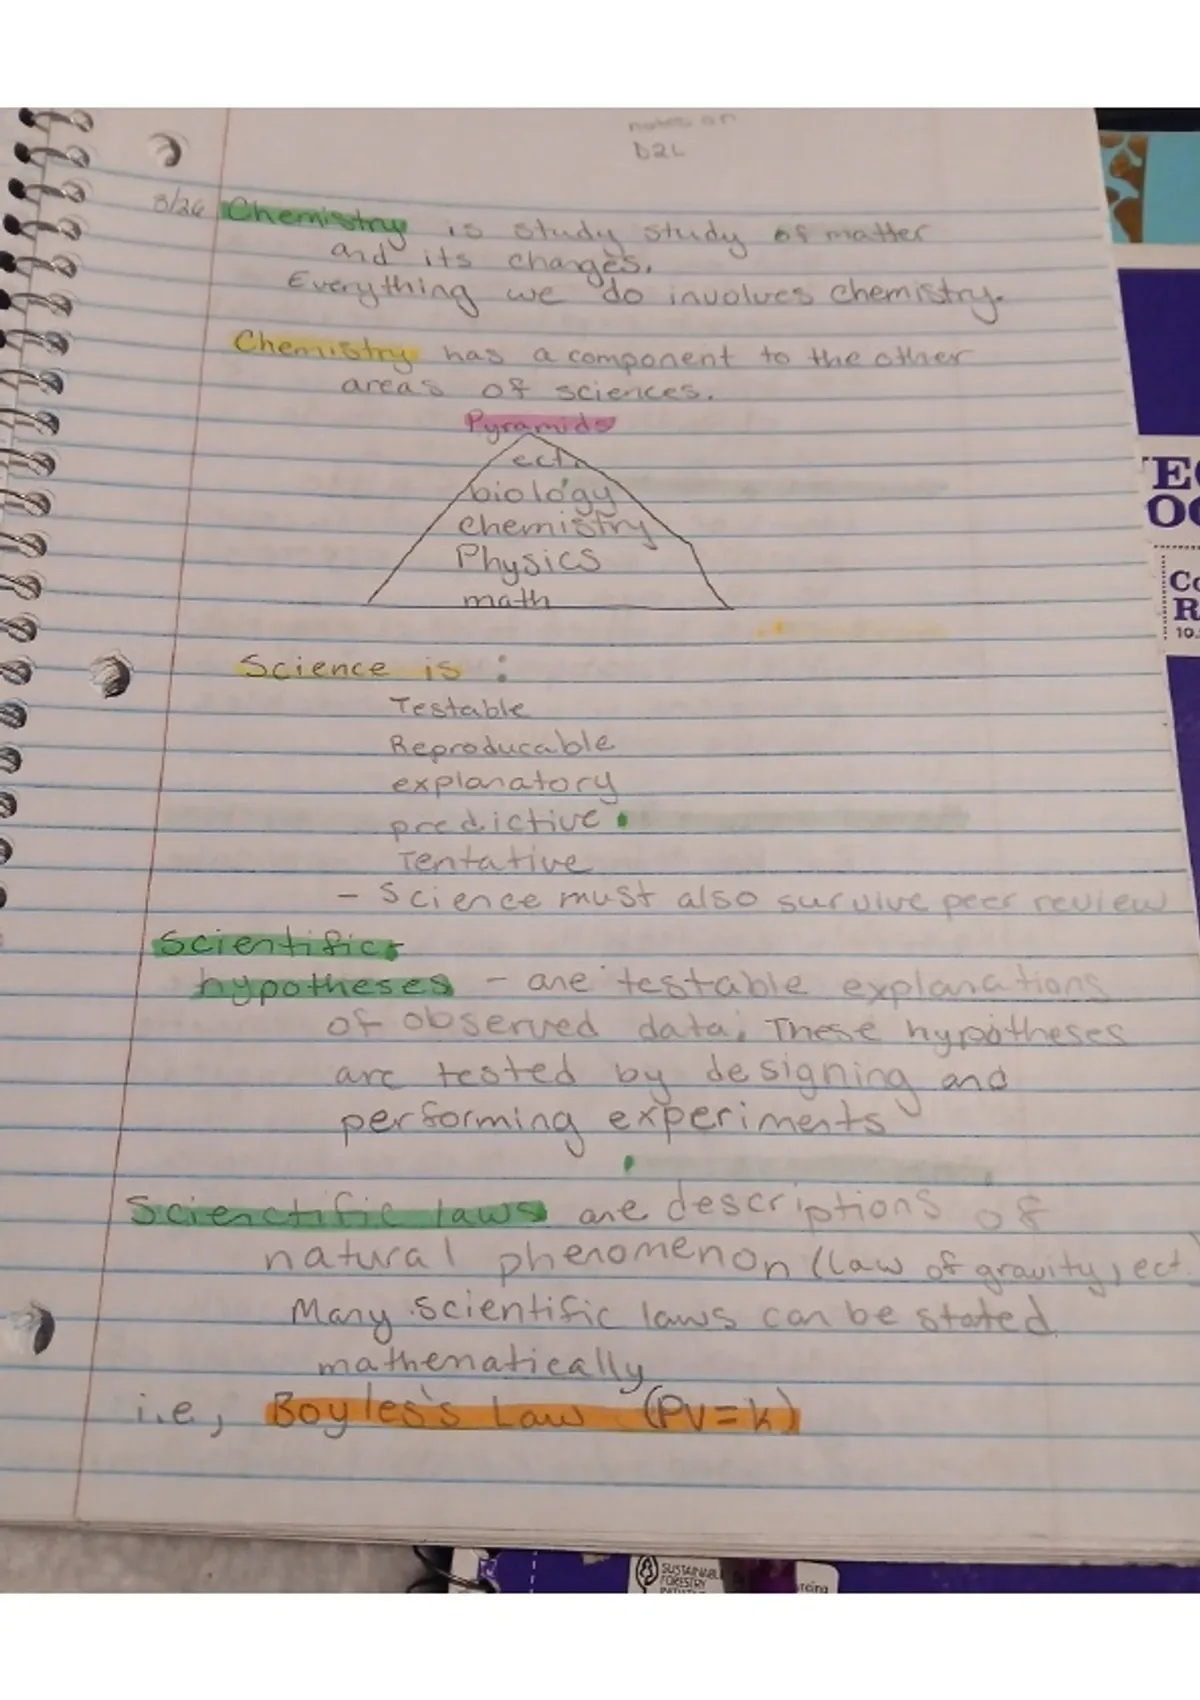 notes on
D2L
8/26 Chemistry is study study of matter
and its changes.
Everything we do involves chemistry.
Chemistry has a component to the other
areas of sciences.
Pyramids
ect.
biology
chemistry
Physics
math
Science is :
Testable
Reproducable
explanatory
predictive
Tentative
- Science must also survive peer review
Scientific
hypotheses - are testable explanations
of observed data. These hypotheses
are tested by designing and
performing experiments
Scienctific laws are descriptions of
natural phenomenon (Law of gravity, ect.)
Many scientific laws can be stated
mathematically
i.e, Boyles's Law (PV=k)
SUSTAINABLE
FORESTRY